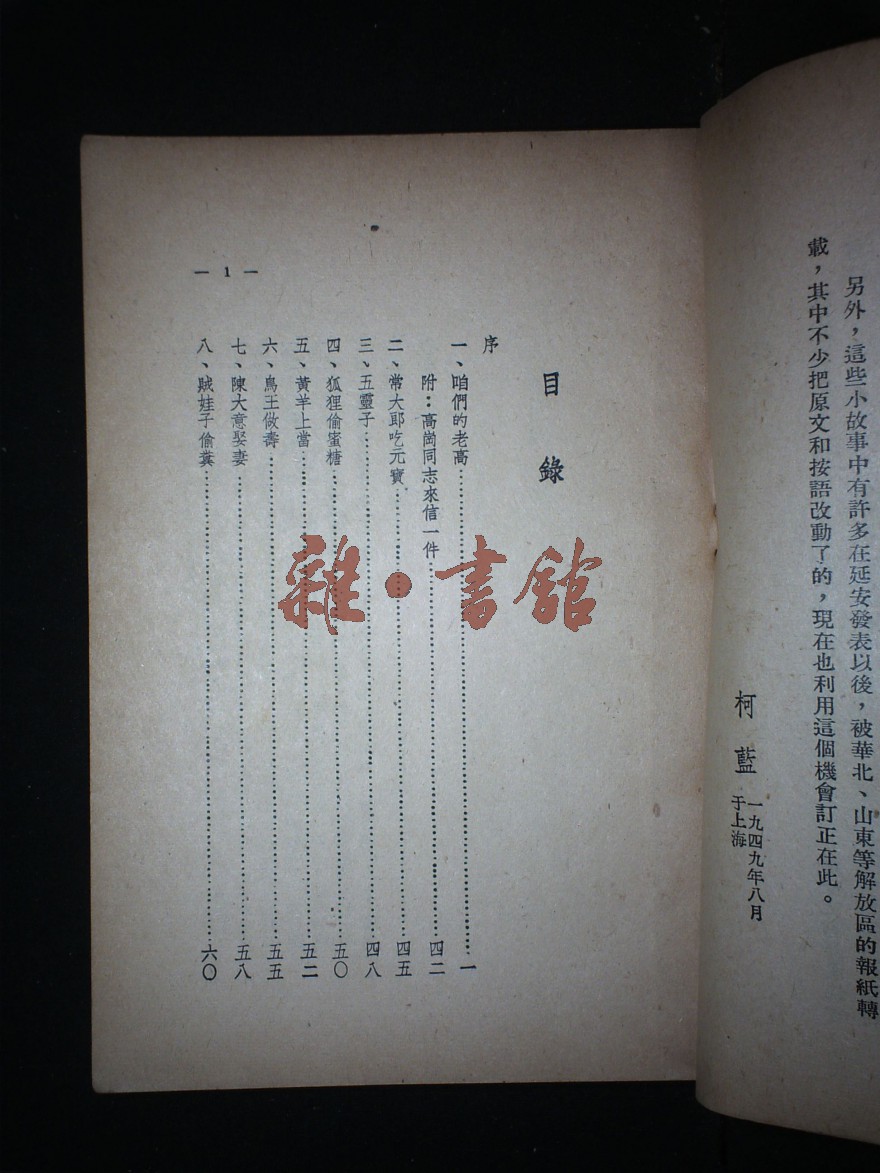 另外，這些小故事中有許多在延安發表以後，被華北、山東等解放區的報紙轉
載，其中不少把原文和按語改動了的，現在也利用這個機會訂正在此。
柯藍
一九四九年八月
于上海
目錄
序
一、咱們的老高……一
附：高崗同志來信一件……四二
二、常大郎吃元寶……四五
三、五靈子……四八
四、狐狸偷蜜糖……五〇
五、黃羊上當……五二
六、鳥王做壽……五五
七、陳大意娶妻……五八
八、賊娃子偷糞……六〇
— 1 —
雜·書館